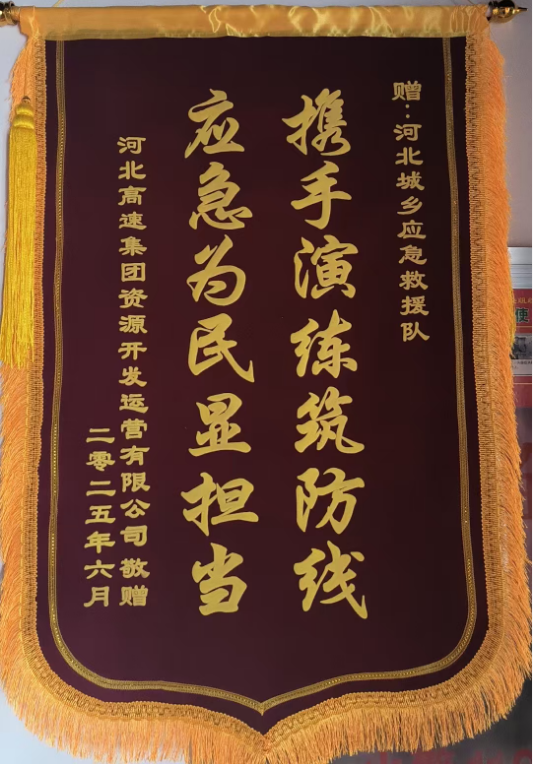 赠:河北城乡应急救援队
携手演练筑防线
应急为民显担当
河北高速集团资源开发运营有限公司 敬赠
二零二五年六月
使